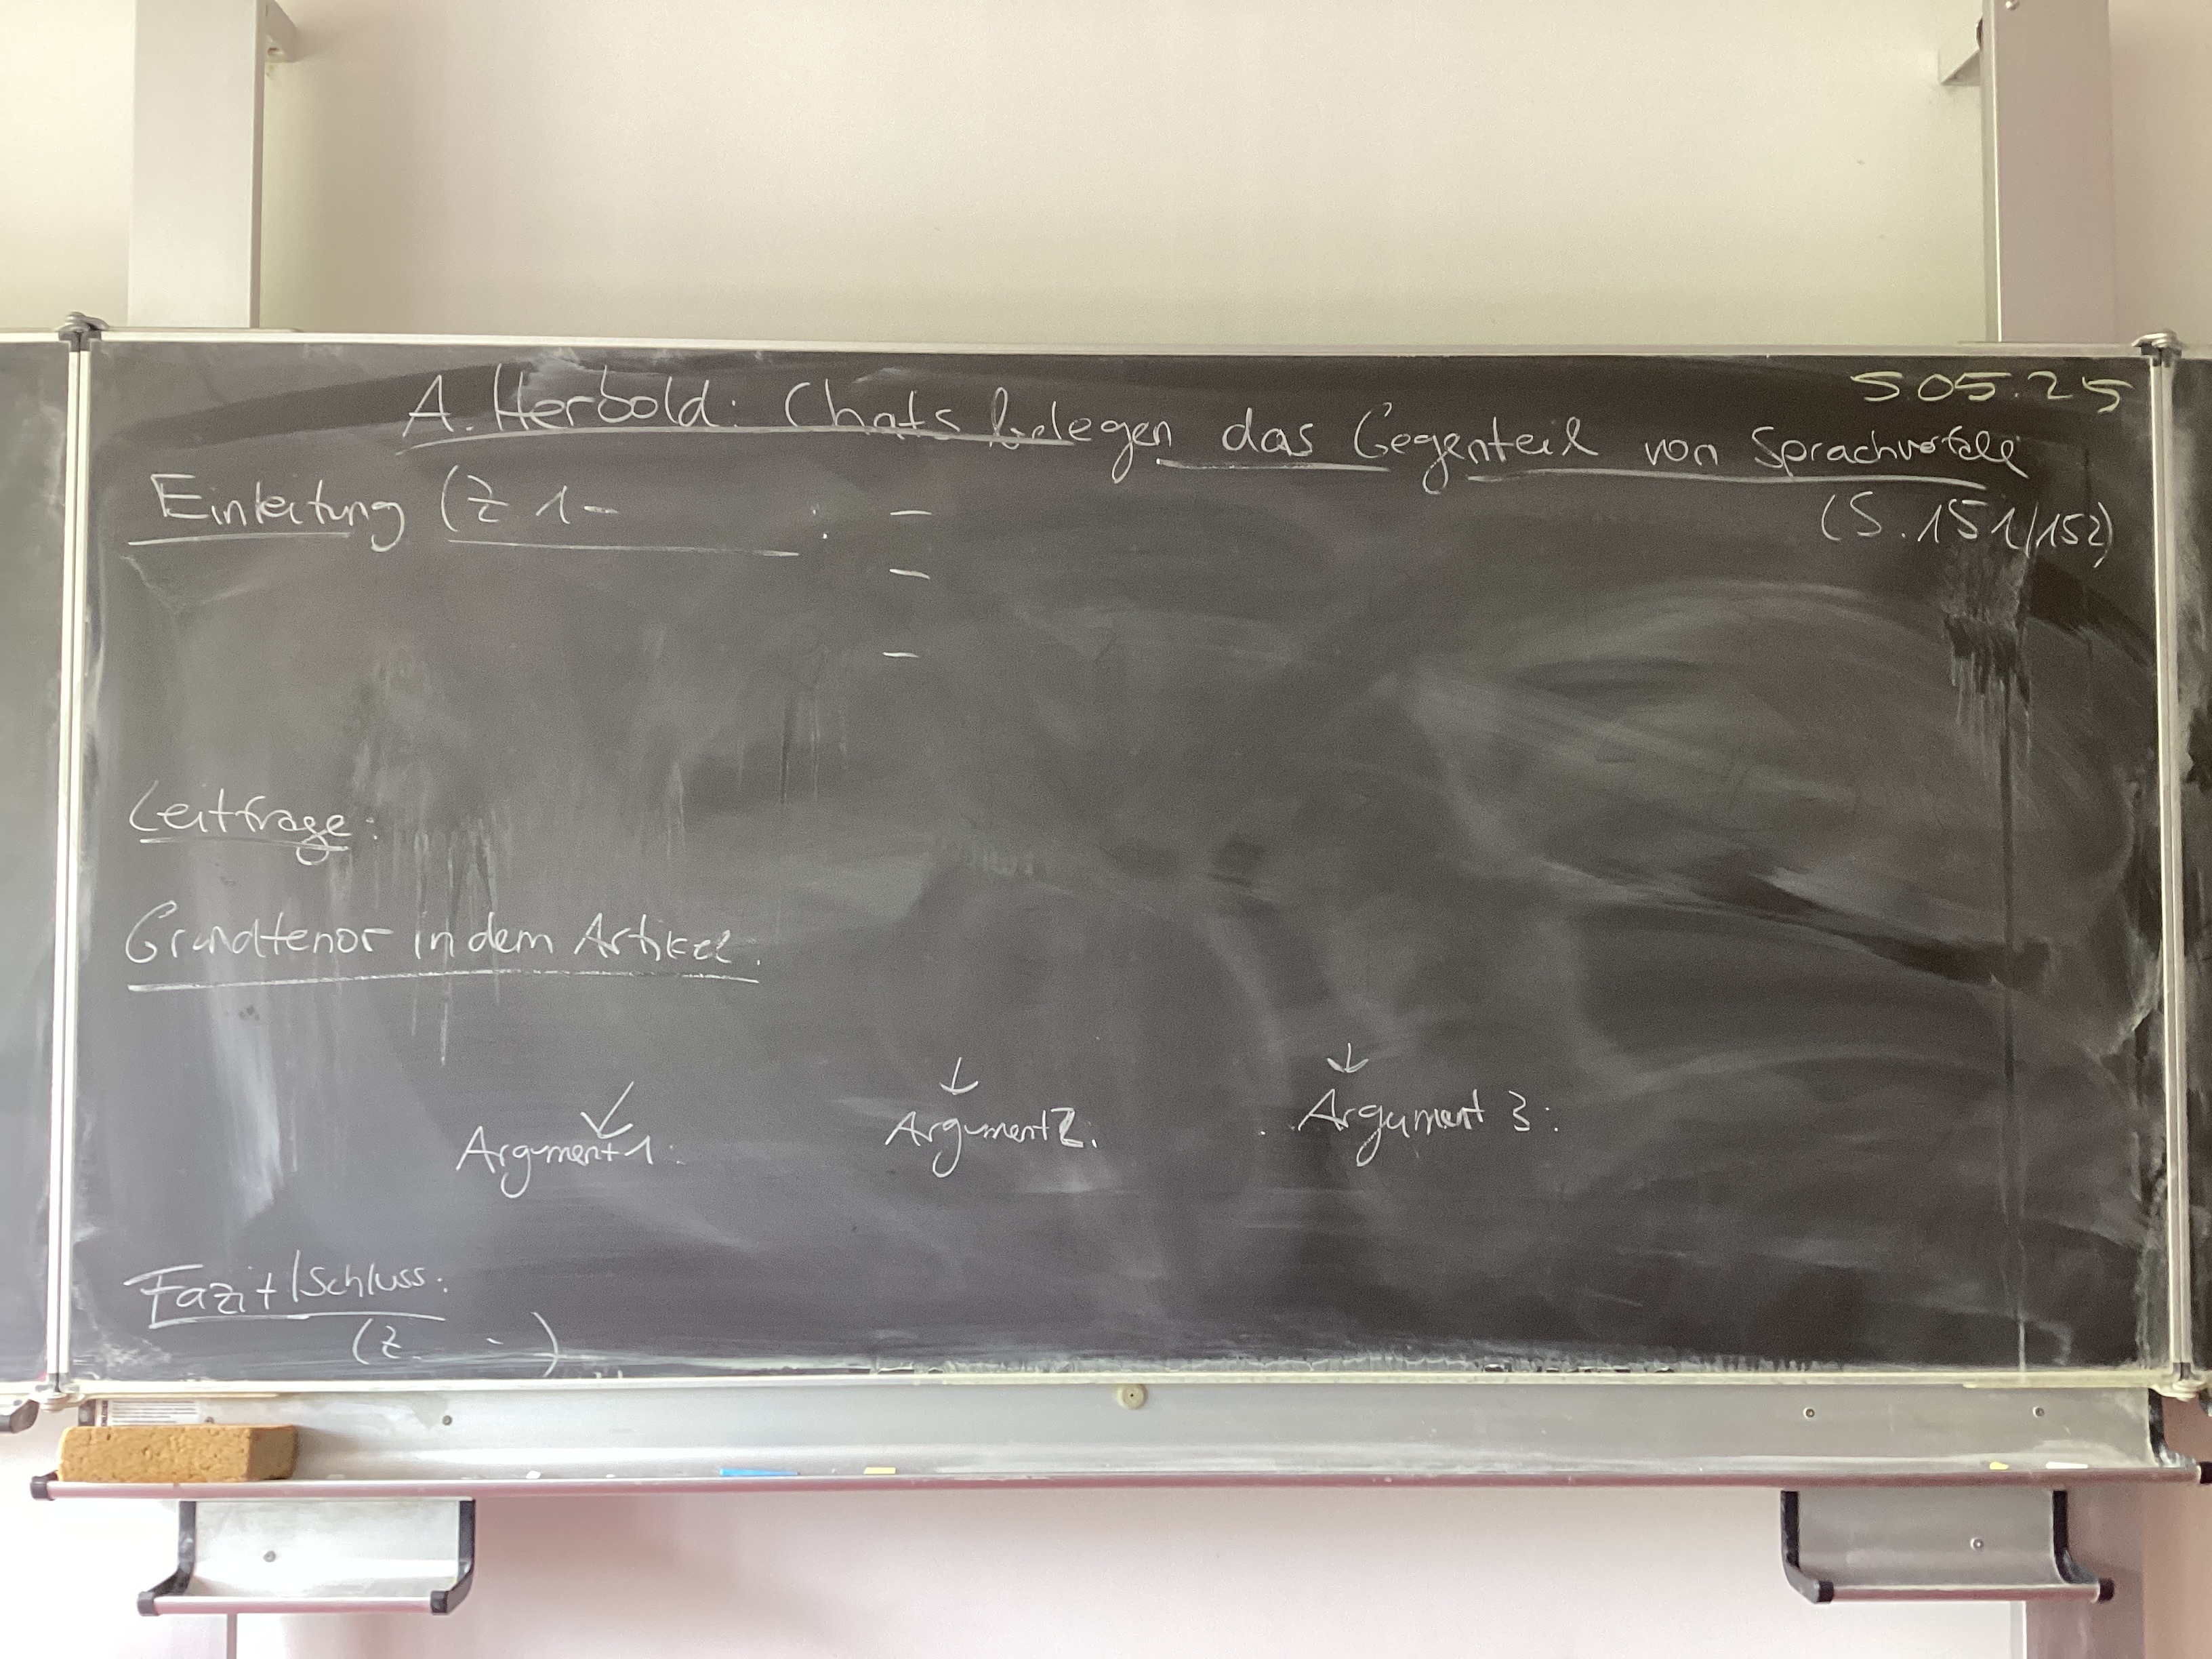 5.05.25
A. Herbold: Chats belegen das Gegenteil von Sprachverfall
(S. 151/152)
Einleitung (Z 1- : -
-
-
Leitfrage:
Grundtenor in dem Artikel:
Argument 1: Argument 2: Argument 3:
Fazit/Schluss:
(Z. - )